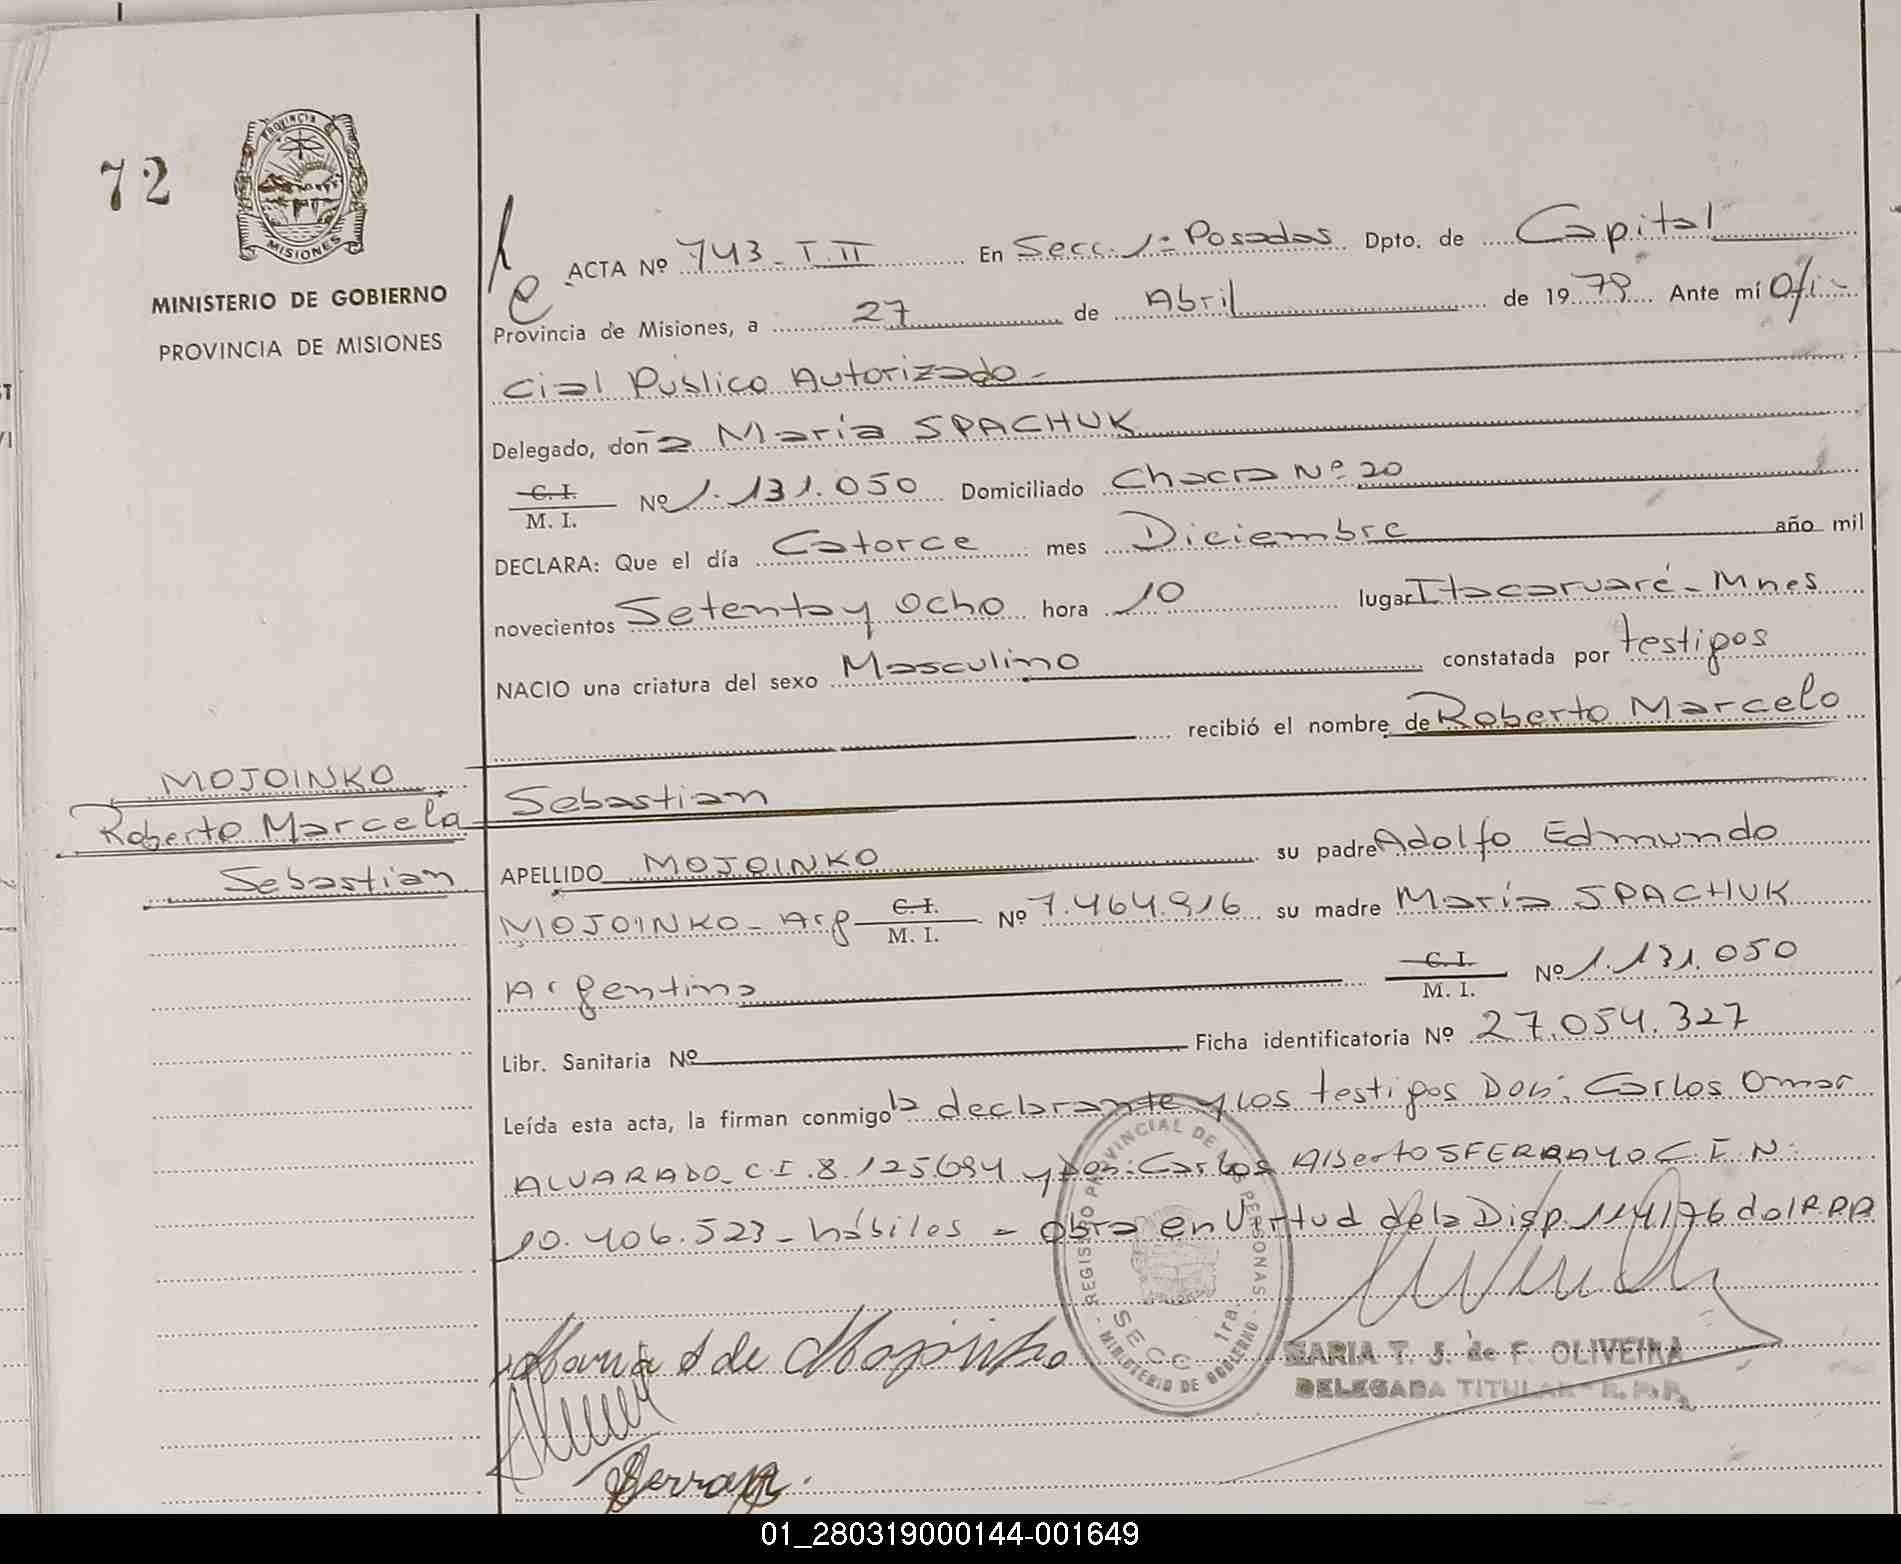 72
PROVINCIA DE
MISIONES
MINISTERIO DE GOBIERNO
PROVINCIA DE MISIONES
ACTA Nº 743 - T. II En Secc. 1ª Posadas Dpto. de Capital
Provincia de Misiones, a 27 de Abril de 1979 Ante mí Ofi-
cial Publico Autorizado -
Delegado, doña Maria SPACHUK
C. I.
M. I. Nº 1.131.050 Domiciliado Chacra Nº 20
DECLARA: Que el día Catorce mes Diciembre año mil
novecientos Setenta y Ocho hora 10 lugar Itacaruaré - Mnes
NACIO una criatura del sexo Masculino constatada por testigos
recibió el nombre de Roberto Marcelo
Sebastian
MOJOINKO
Roberto Marcelo
Sebastian
APELLIDO MOJOINKO su padre Adolfo Edmundo
MOJOINKO - Arg C. I. M. I. Nº 7.464.916 su madre Maria SPACHUK
Argentina C. I. M. I. Nº 1.131.050
Libr. Sanitaria Nº Ficha identificatoria Nº 27.054.327
Leída esta acta, la firman conmigo la declarante y los testigos Don: Carlos Omar
ALVARADO - C.I. 8.125.694 y Don: Carlos Alberto SFERRAYO C. I. N:
10.406.523 - hábiles - obra en Virtud de la Disp. 114/76 del RPP
REGISTRO PROVINCIAL DE LAS PERSONAS
SECC. 1ra.
- MINISTERIO DE GOBIERNO -
Maria S de Mojoinko
MARIA T. J. de F. OLIVEIRA
DELEGADA TITULAR - R. P. P.
01_280319000144-001649